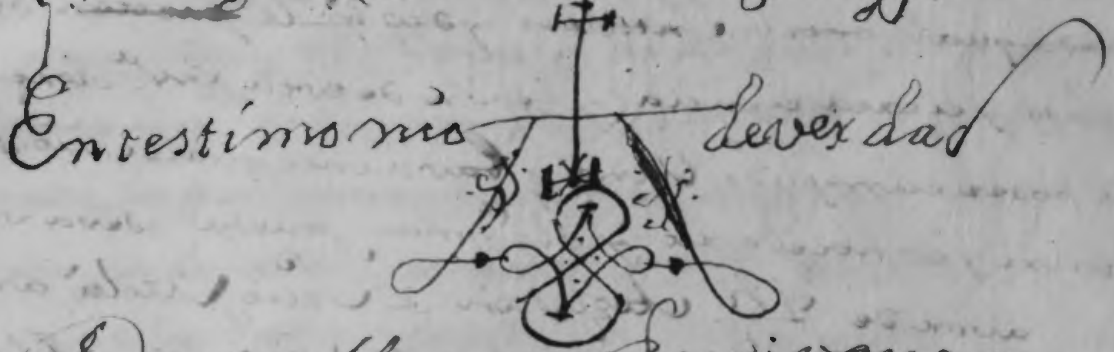 Entestimonio deverdad